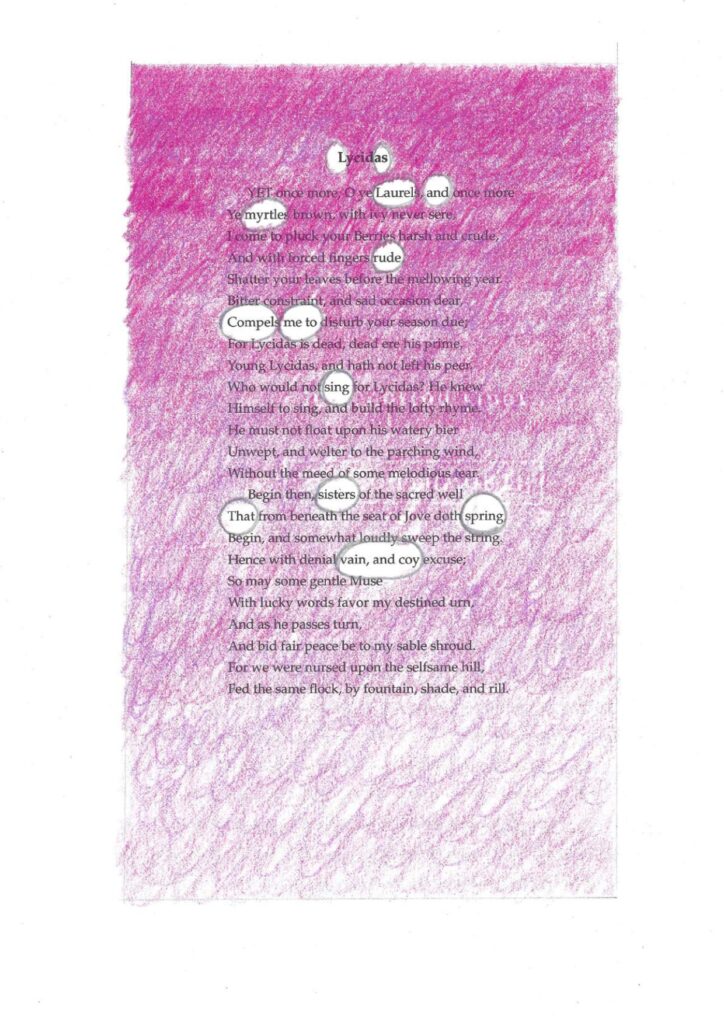 Lycidas
YET once more, O ye Laurels, and once more
Ye myrtles brown, with ivy never sere,
I come to pluck your Berries harsh and crude,
And with forced fingers rude,
Shatter your leaves before the mellowing year.
Bitter constraint, and sad occasion dear,
Compels me to disturb your season due;
For Lycidas is dead, dead ere his prime,
Young Lycidas, and hath not left his peer.
Who would not sing for Lycidas? He knew
Himself to sing, and build the lofty rhyme.
He must not float upon his watery bier
Unwept, and welter to the parching wind,
Without the meed of some melodious tear.
Begin then, sisters of the sacred well
That from beneath the seat of Jove doth spring,
Begin, and somewhat loudly sweep the string.
Hence with denial vain, and coy excuse;
So may some gentle Muse
With lucky words favor my destined urn,
And as he passes turn,
And bid fair peace be to my sable shroud.
For we were nursed upon the selfsame hill,
Fed the same flock, by fountain, shade, and rill.